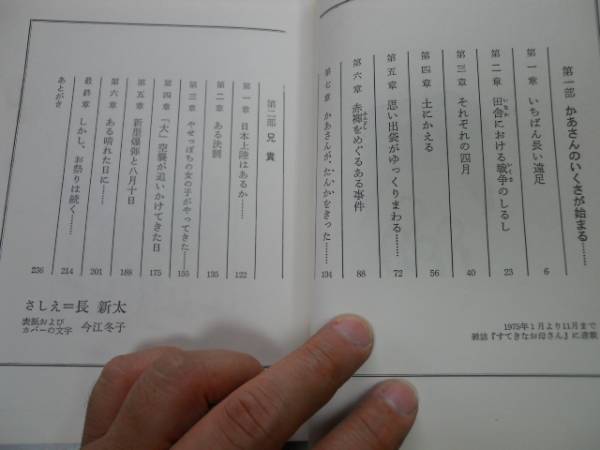 第一部 かあさんのいくさが始まる……
第一章 いちばん長い遠足 6
第二章 田舎における戦争のしるし 23
第三章 それぞれの四月 40
第四章 土にかえる 56
第五章 思い出袋がゆっくりまわる…… 72
第六章 赤褌をめぐるある事件 88
第七章 かあさんが、たんかをきった…… 104
1975年1月より11月まで
雑誌『すてきなお母さん』に連載
第二部 兄貴
第一章 日本上陸はあるか…… 122
第二章 ある決闘 135
第三章 やせっぽちの女の子がやってきた…… 155
第四章 「大」空襲が追いかけてきた日 175
第五章 新型爆弾と八月十日 189
第六章 ある晴れた日に…… 201
最終章 しかし、お祭りは続く…… 214
あとがき 236
さしえ=長 新太
表紙および
カバーの文字 今江冬子